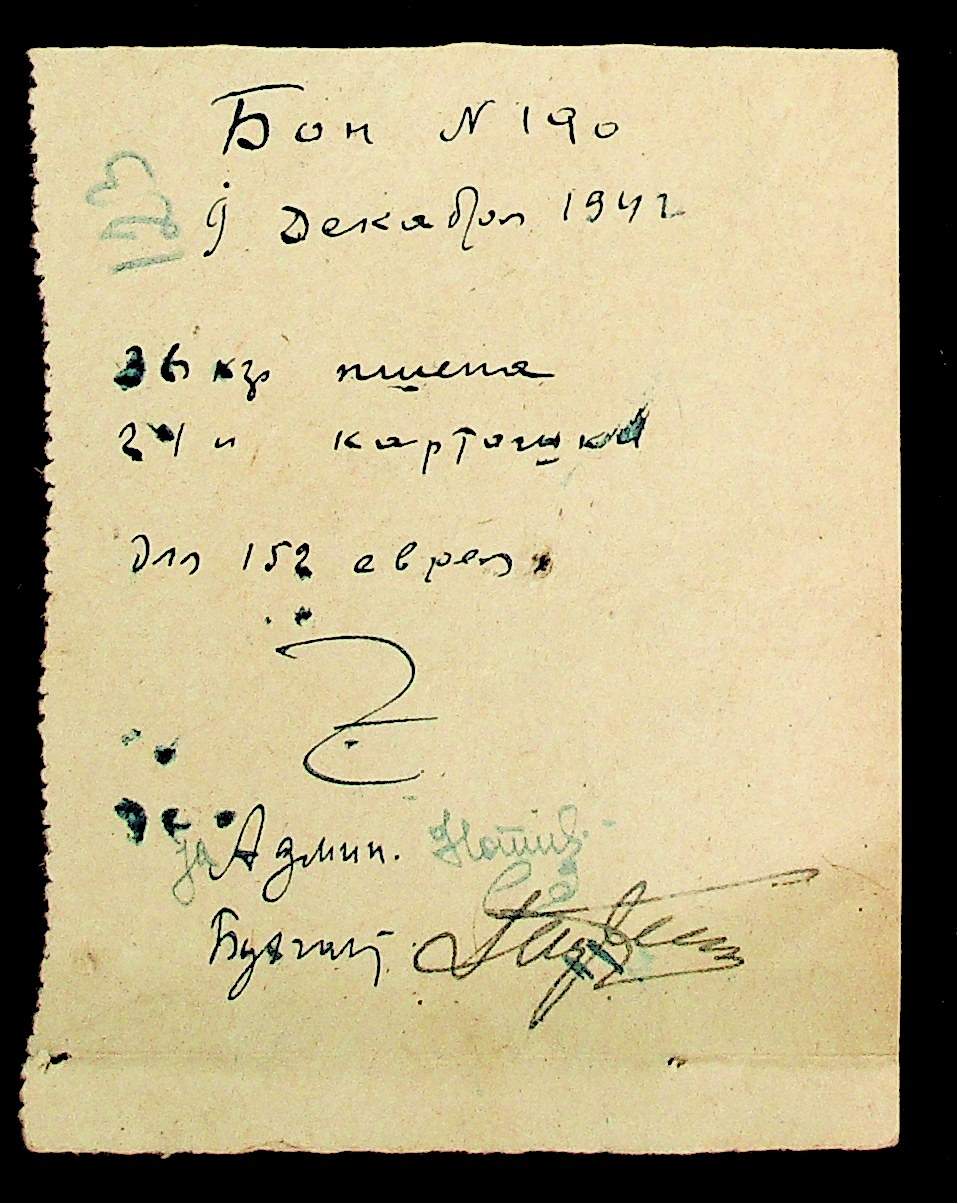 Бон N 190
9 Декабря 1942
36 кгр пшена
24 " картошки
для 152 евреев
За Админ.
Бухгалт.